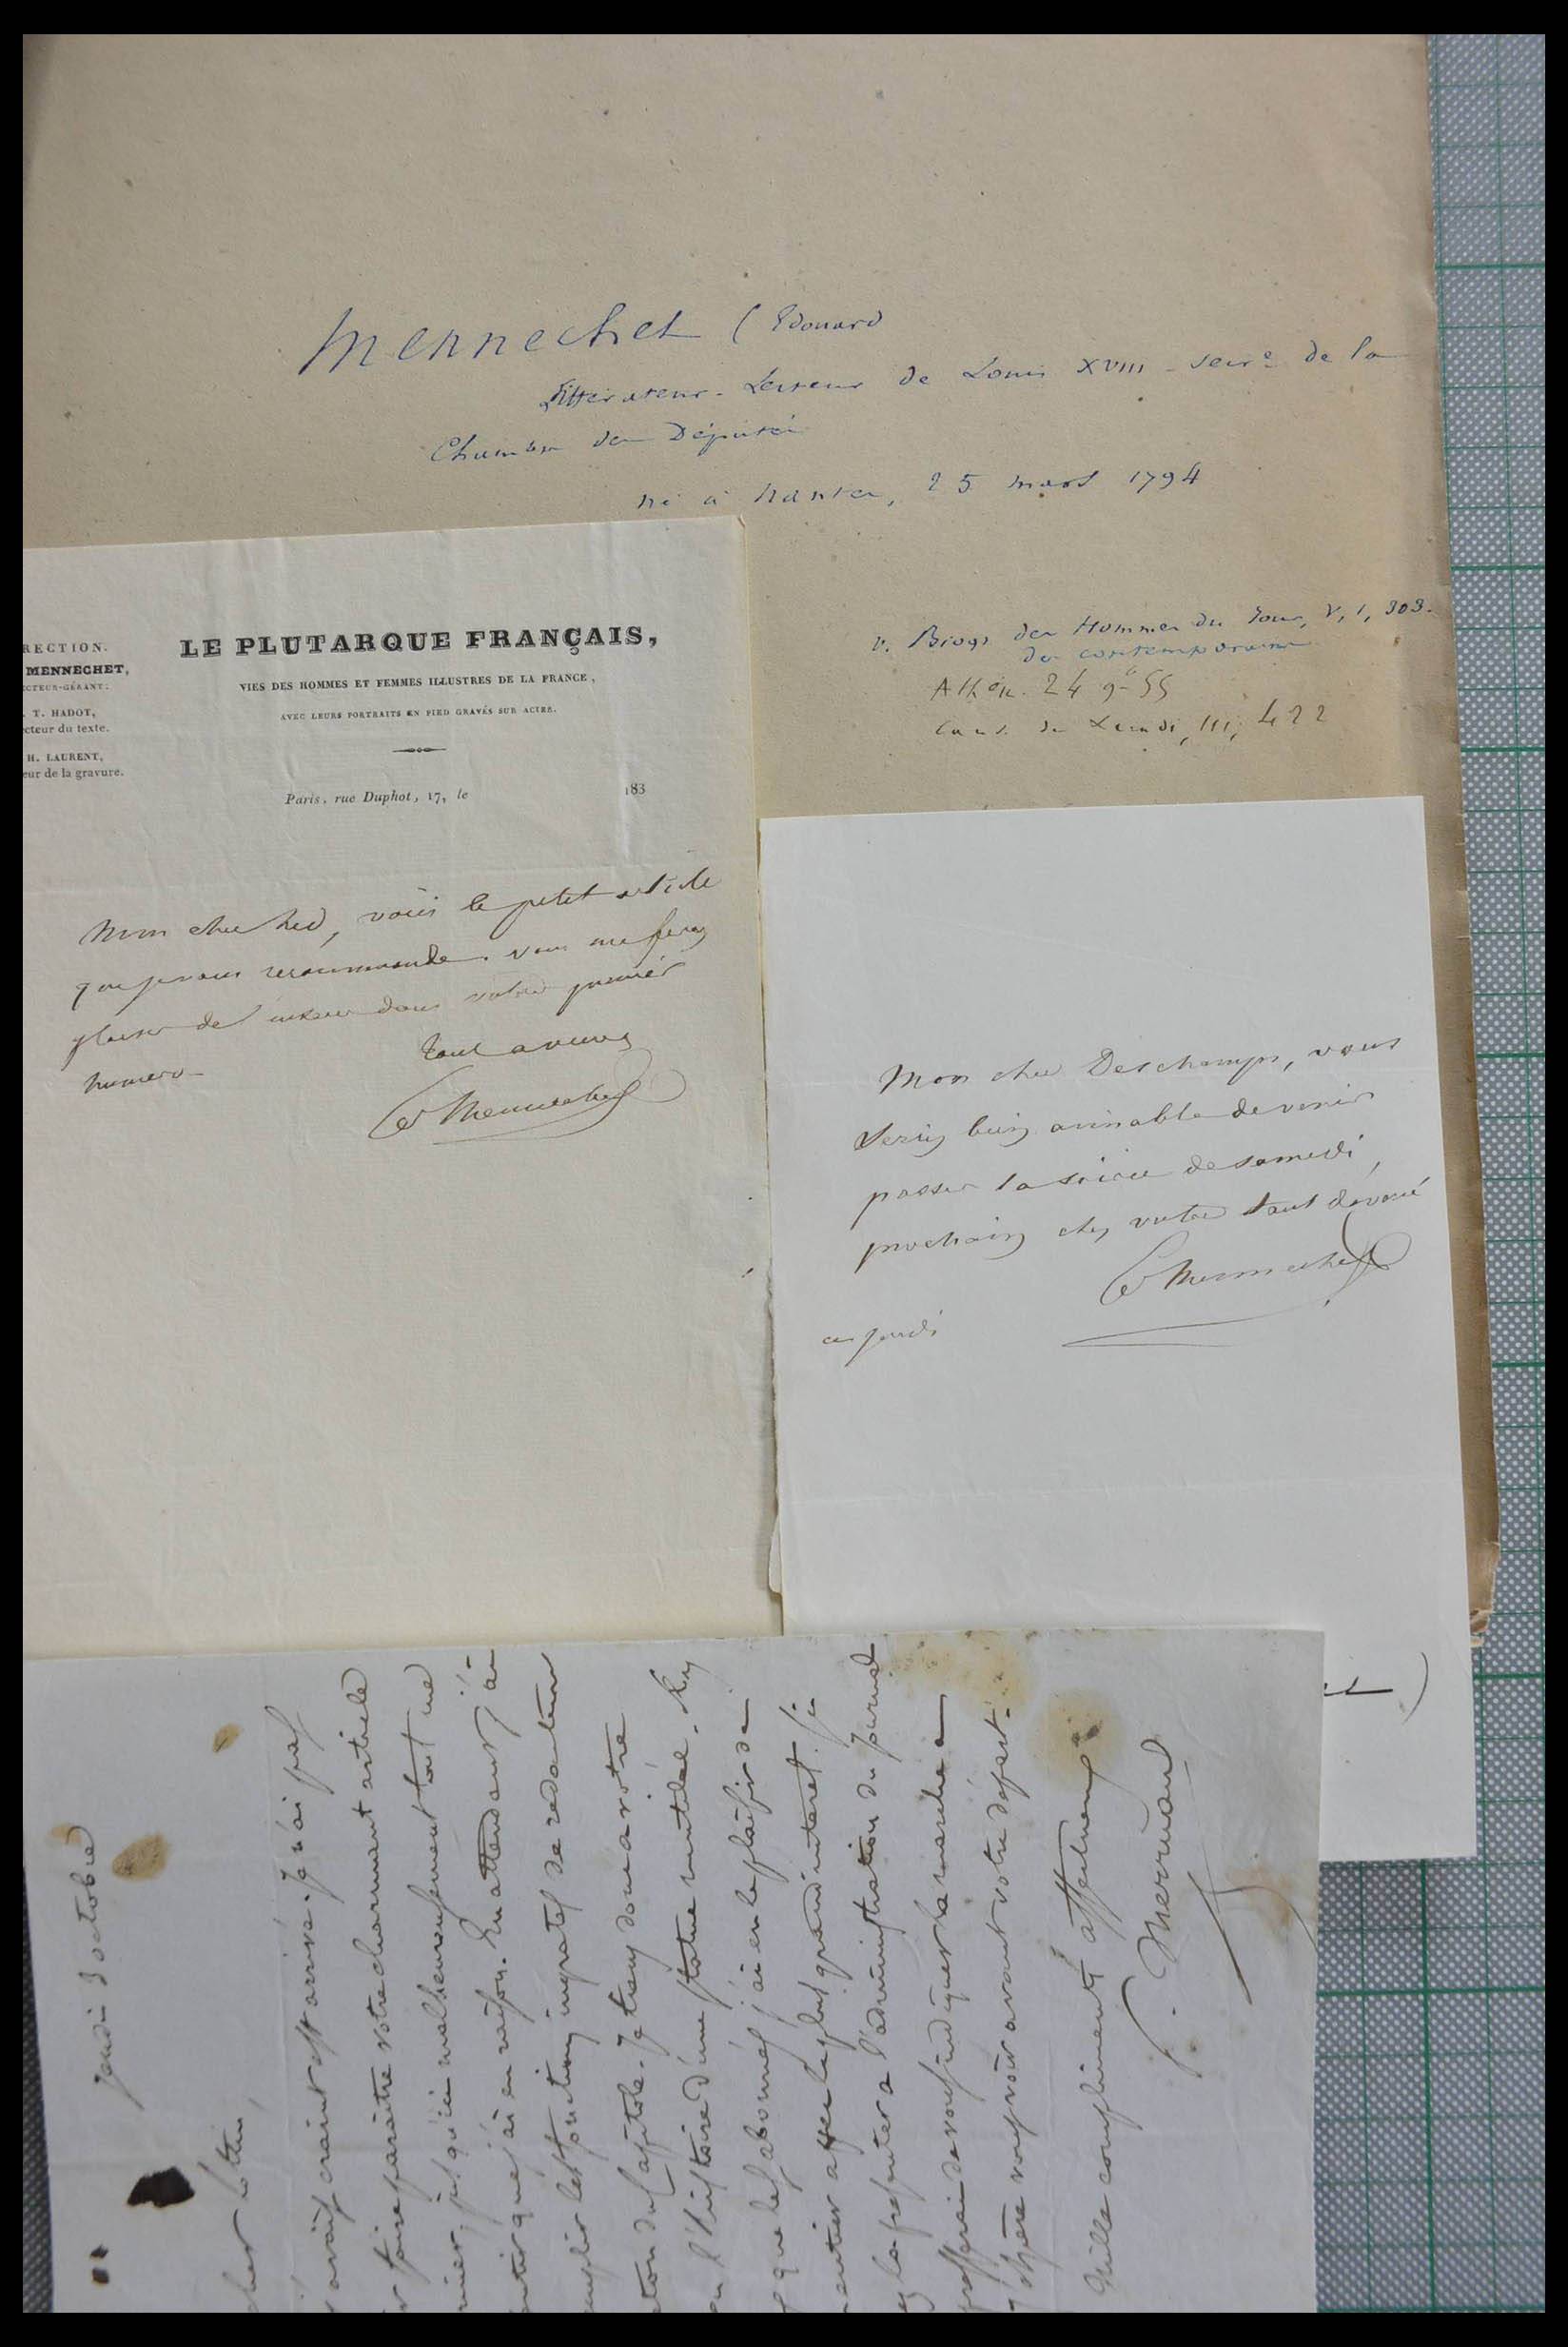 Mennechet (Edouard
Littérateur - Lecteur de Louis XVIII - secre de la
Chambre des Députés
né à Nantes, 25 mars 1794
v. Biogr des Hommes du Jour, V, 1, 303.
des contemporains
Athén. 24 9e 55
Caus. du Lundi, III, 422
RECTION.
MENNECHET,
ECTEUR-GÉRANT:
. T. HADOT,
cteur du texte.
H. LAURENT,
eur de la gravure.
LE PLUTARQUE FRANÇAIS,
VIES DES HOMMES ET FEMMES ILLUSTRES DE LA FRANCE,
AVEC LEURS PORTRAITS EN PIED GRAVÉS SUR ACIER.
Paris, rue Duphot, 17, le 183
Mon cher, voici le petit article
que je vous recommande. Vous me ferez
plaisir de l'insérer dans votre premier
numero -
Tout a vous
Ed Mennechet
Mon cher Deschamps, vous
seriez bien aimable de venir
passer la soirée de samedi,
prochain chez votre tout dévoué
Ed Mennechet
ce jeudi
jeudi 3 octobre
cher Lottin,
avais craint est arrivé. Je n'ai pas
faire paraître votre charmant article
jusqu'ici malheureusement tout me
que j'ai eu raison. En attendant j'ai
remplir les fonctions ingrates de rédacteur
du Capitole. Je tiens donc a votre
l'histoire d'une statue mutilée.
que les abonnés j'ai eu le plaisir de
assez le plus grand interet. Si
la presenter a l'administration du journal
de vous indiquer la marche a
j'espère vous voir avant votre départ.
Mille compliments affectueux
Merruau